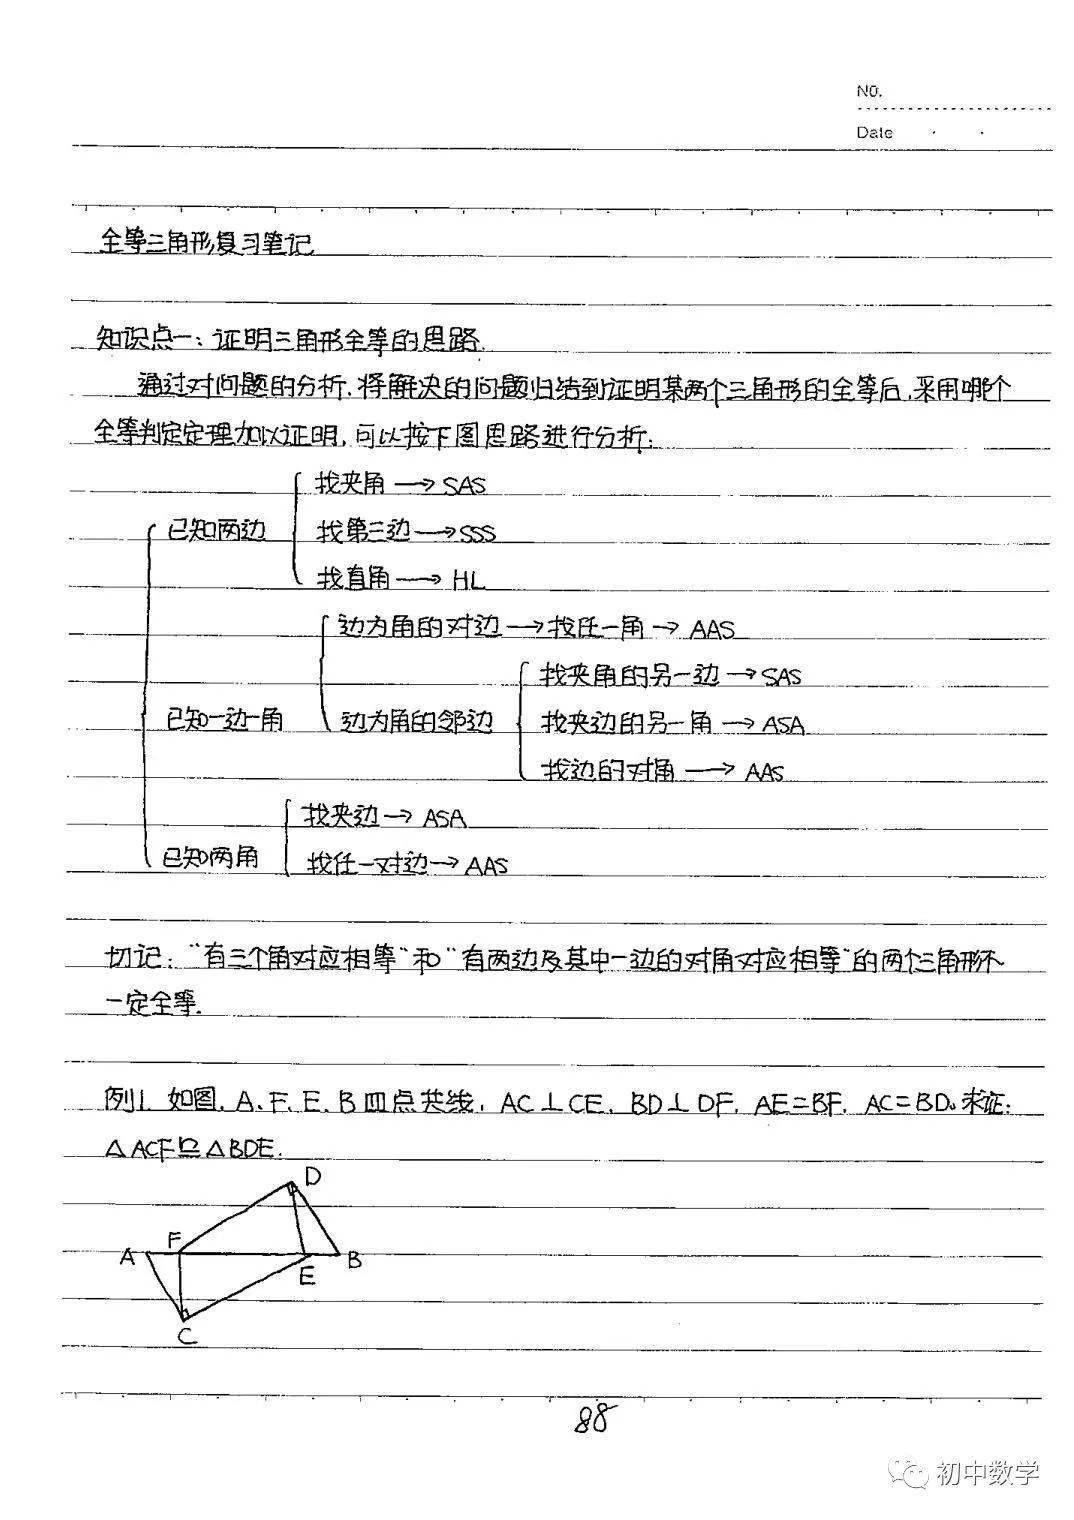 NO.
Date
全等三角形复习笔记
知识点一:证明三角形全等的思路.
通过对问题的分析,将解决的问题归结到证明某两个三角形的全等后,采用哪个
全等判定定理加以证明,可以按下图思路进行分析:
找夹角→SAS
已知两边
找第三边→SSS
找直角→HL
边为角的对边→找任一角→AAS
找夹角的另一边→SAS
已知一边一角
边为角的邻边
找夹边的另一角→ASA
找边的对角→AAS
找夹边→ASA
已知两角
找任一对边→AAS
切记:"有三个角对应相等"和"有两边及其中一边的对角对应相等"的两个三角形不
一定全等.
例1.如图,A、F、E、B四点共线,AC⊥CE,BD⊥DF,AE=BF,AC=BD。求证:
△ACF≌△BDE.
D
F
A
B
E
C
88
初中数学